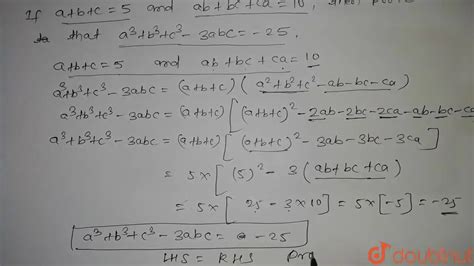 If a+b+c = 5 and ab+bc+ca = 10,
that a³+b³+c³-3abc = -25.
a+b+c = 5 and ab+bc+ca = 10
a³+b³+c³-3abc = (a+b+c) (a²+b²+c²-ab-bc-ca)
a³+b³+c³-3abc = (a+b+c) [(a+b+c)²-2ab-2bc-2ca-ab-bc-ca
a³+b³+c³-3abc = (a+b+c) [(a+b+c)²-3ab-3bc-3ca]
= 5×[(5)²-3(ab+bc+ca)
= 5×[25-3×10] = 5×[-5] = -25
a³+b³+c³-3abc = -25
LHS = RHS Pro
doubtnut